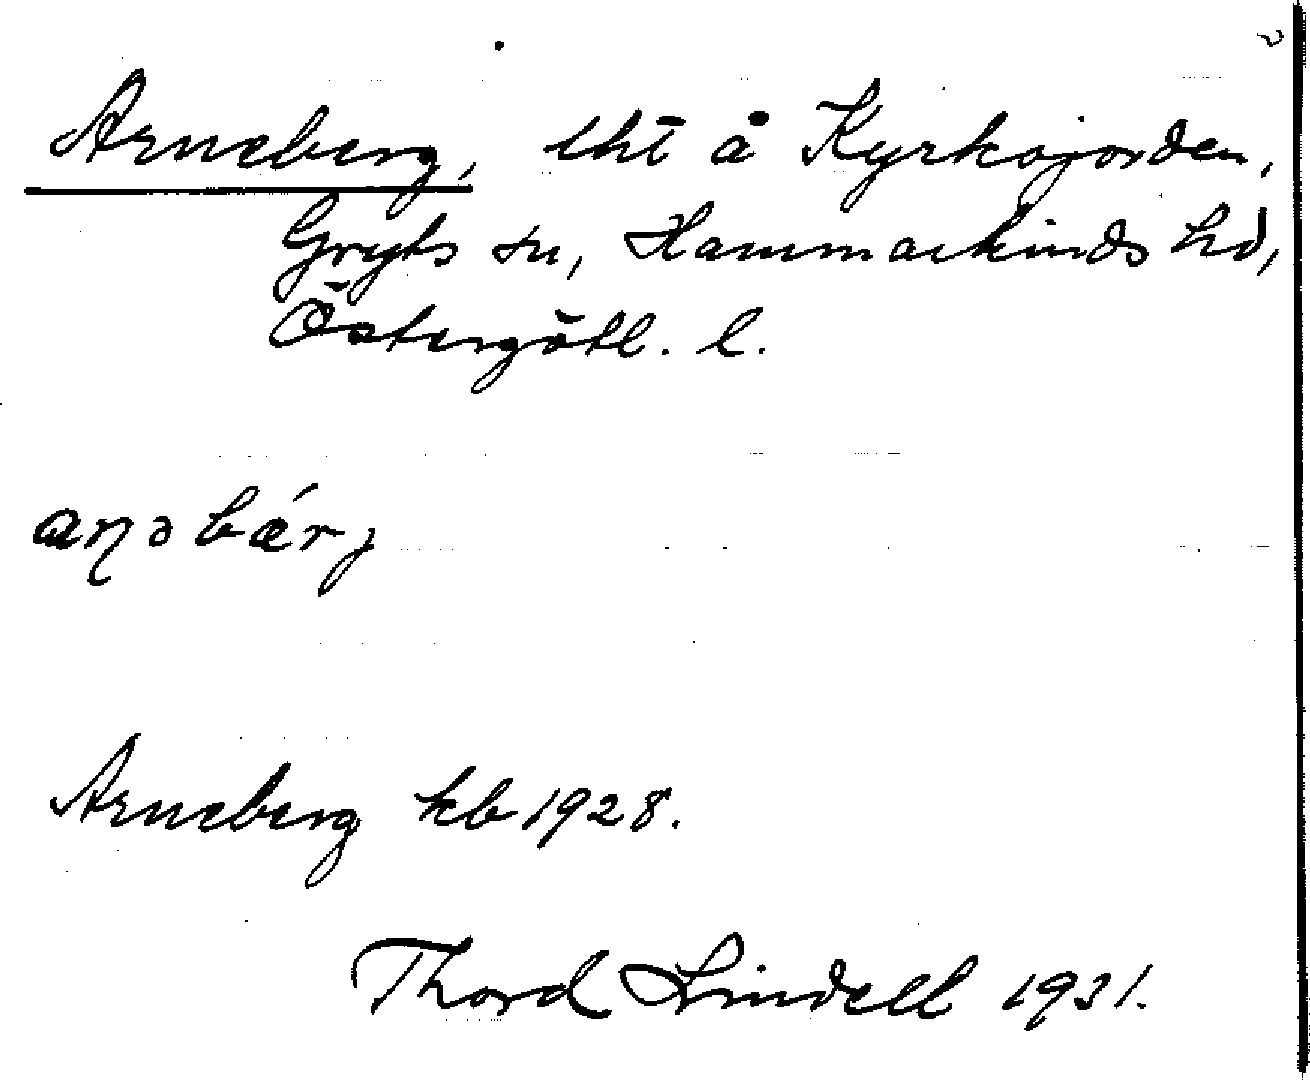 Arneberg, lht å Kyrkojorden,
Gryts sn, Hammarkinds hd,
Östergötl. l.
aṇəbǽrj
Arneberg kb 1928.
Thord Lindell 1931.